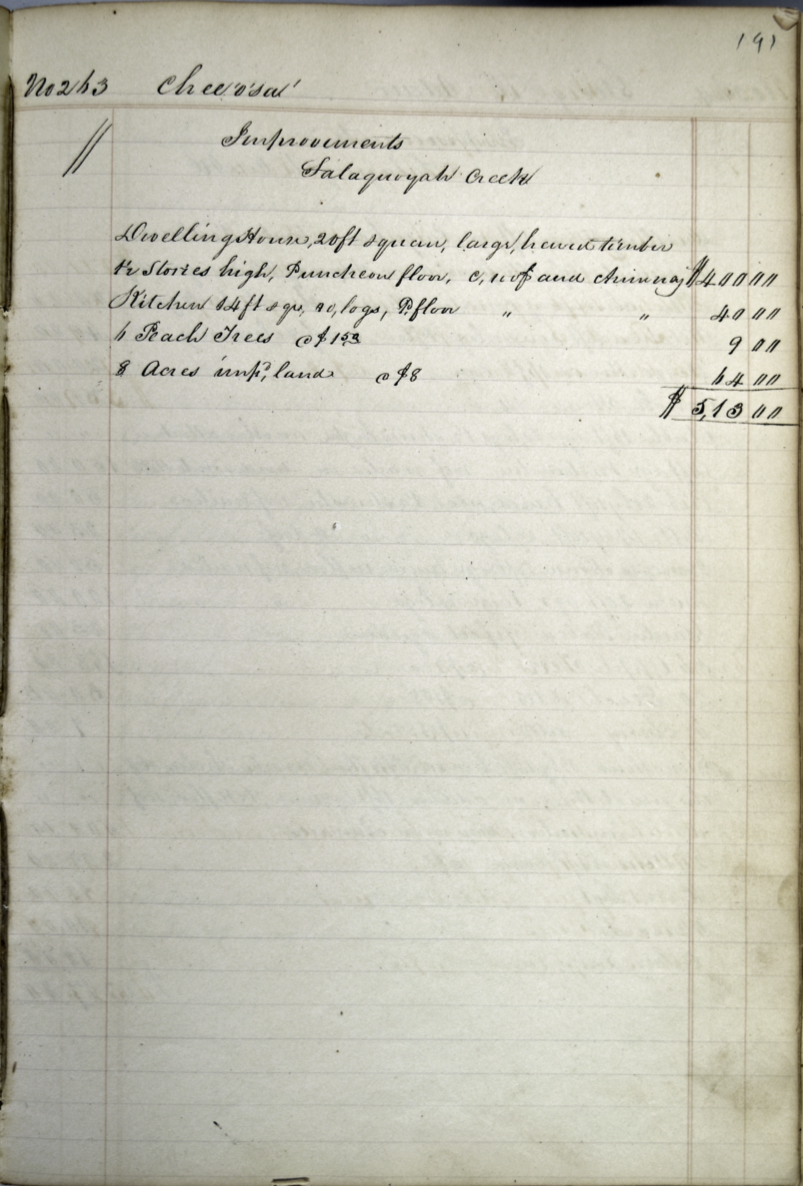 191
No 263 Chee'o'sa'
Improvements
Salaquoyah Creek
Dwelling House, 20ft square, large, hewed timber
1½ Stories high, Puncheon floor, C, roof and chimney $400 00
Kitchen 14ft sqr, ro, logs, P. floor " " 40 00
6 Peach Trees @ $1 50 9 00
8 Acres imp'd, land @ $8 64 00
$ 513 00